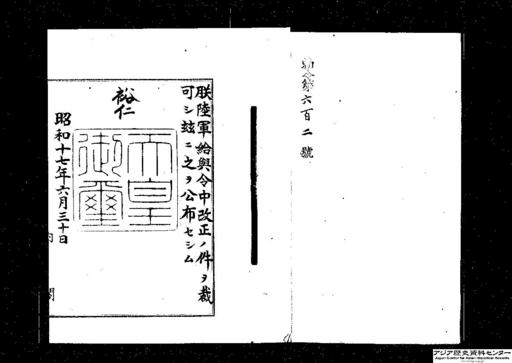 勅令第六百二號
朕陸軍給與令中改正ノ件ヲ裁
可シ玆ニ之ヲ公布セシム
裕仁
天皇御璽
昭和十七年六月三十日
内閣
アジア歴史資料センター
Japan Center for Asian Historical Records